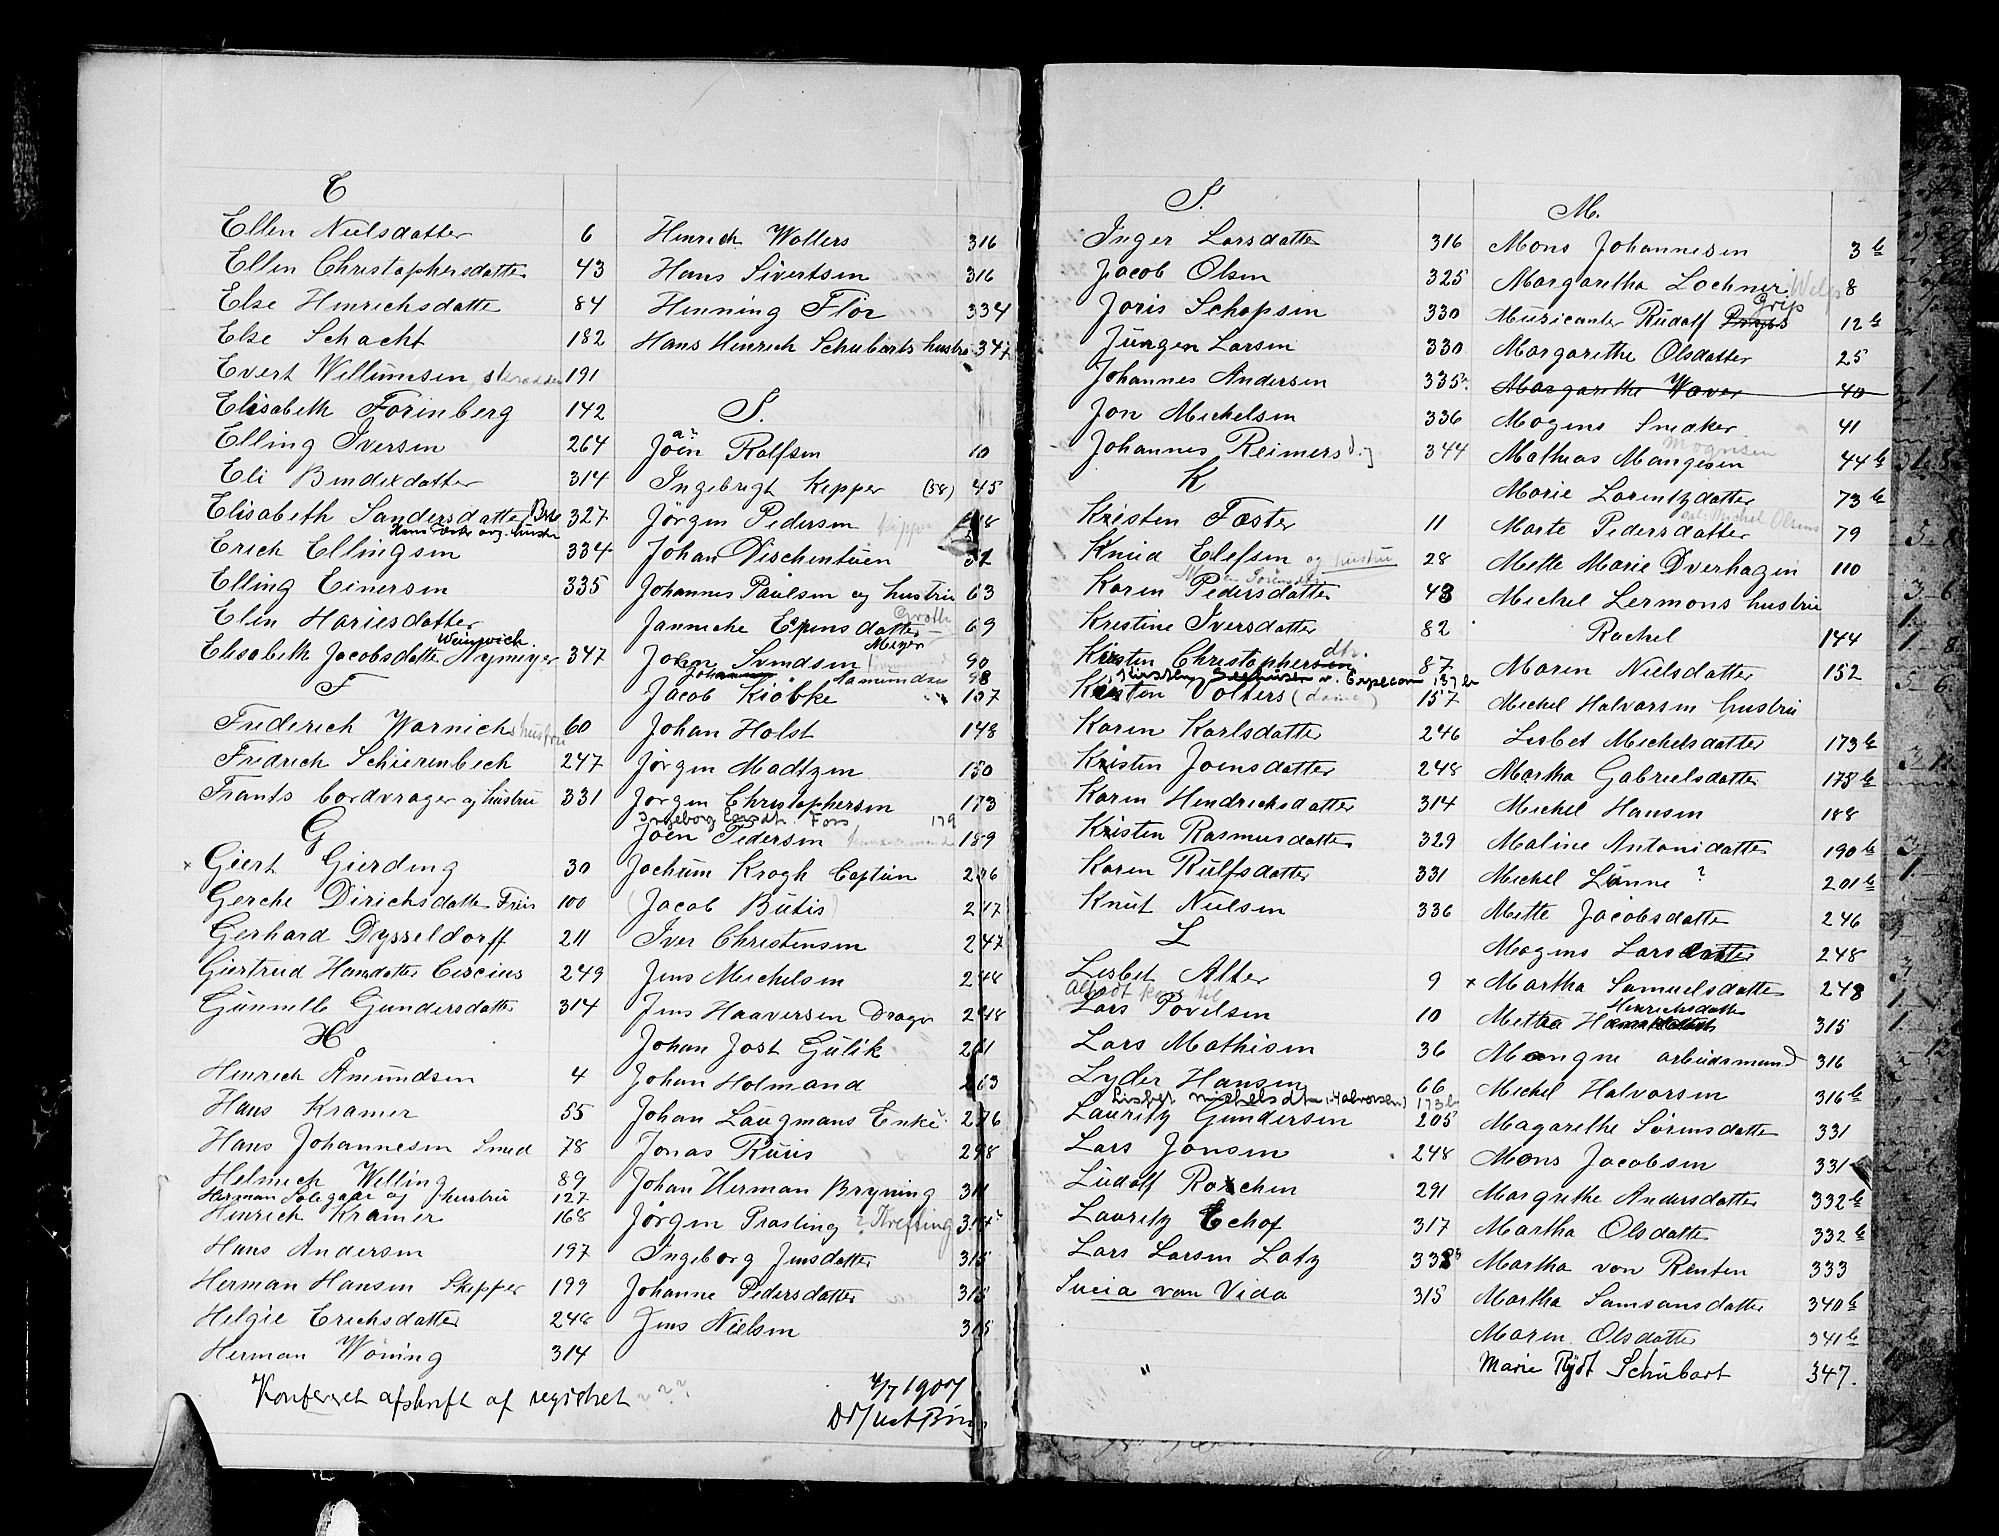 E
Ellen Nielsdatter 6
Ellen Christophersdatter 43
Else Hinrichsdatte 84
Else Schacht 182
Evert Willumsen, skrædder 191
Elisabeth Forinberg 142
Elling Iversen 264
Eli Bendixdatter 314
Elisabeth Sandersdatter 327
Erich Ellingsen 334
Elling Einersen 335
Elin Hariesdatter
Weinwich
Elisabeth Jacobsdatter Nymeyer 347
F
Frederich Warnichs hustru 60
Fredrich Schierenbeck 247
Frants bordvrager og hustru 331
G
x Giert Gierding 30
Gerche Dirichsdatte Friis 100
Gerhard Dysseldorff 211
Giertrud Hansdatter Ciscius 249
Gunnelle Gundersdatte 314
H
Hinrich Åmundsen 4
Hans Kramer 55
Hans Johannesen Smed 78
Helmich Welling 89
Herman Solegaar og hustru 127
Hinrich Kramer 168
Hans Andersen 197
Herman Hansen Skipper 199
Helgie Erichsdatter 248
Herman Wöning 314
Konfereret afskrift af registret
Hinrich Wolters 316
Hans Sivertsen 316
Henning Flor 334
Hans Hinrich Schubarts hustru 347
J.
a?
Joen Rolfsen 10
Ingebrigt Kipper (38) 45
Jörgen Pedersen kipper
Johan Vischentuen 52
Johannes Paulsen og hustru 63
Grotte
Janniche Espensdatter 69
Meyer
Johan Svendsen 90
Johannes Samundsen 98
Jacob Kiöbke 107
Johan Holst 148
Jörgen Madtzen 150
Jörgen Christophersen 173
Ingeborg Larsdt. Fors 179
Joen Pedersen 189
Jochum Krogh Captein 236
(Jacob Butis) 247
Iver Christensen 247
Jens Michelsen 248
Jens Haaversen Drager 248
Johan Jost Gulik 261
Johan Holmand 263
Johan Laugmans Enke 276
Jonas Ruus 298
Johan Herman Bryning 311
Jörgen Prasling ? Krefting 314
Ingeborg Jensdatter 315
Johanne Pedersdatter 315
Jens Nielsen 315
4/7 1907
Dr Just Bing
J.
Inger Larsdatter 316
Jacob Olsen 325
Joris Schopsen 330
Jurgen Larsen 330
Johannes Andersen 335
Jon Michelsen 336
Johannes Reimers 344
K
Kristen Foster 11
Knud Elefsen og hustru 28
Karen Pedersdatter 43
Kristine Iversdatter 82
dtr.
Kirsten Christophersen 87
Kirsten Volters (danie) 157
Karen Karlsdatter 246
Kristen Joensdatter 248
Karen Hendrichsdatter 314
Kristen Rasmusdatter 329
Karen Rulfsdatter 331
Knut Nielsen 336
L
Lisbet Alter 9
Lars Povelsen 10
Lars Mathisen 36
Lyder Hansen 66
Lisbet Michelsdtr (Halvorsen) 173b
Lauritz Gundersen 205
Lars Jonsen 248
Ludolf Roschen 291
Lauritz Echof 317
Lars Larsen Latz 333
Lucia van Vida 315
M.
Mons Johannesen 3b
Margaretha Lochner Welp 8
Grip
Musicanter Rudolf 12b
Margarethe Olsdatter 25
Margarethe Waver 40
Mogens Snedker 41
Mognsen
Mathias Mangesen 44b
Marie Lorentzdatter 73b
sal. Michel Olsens
Marte Pedersdatter 79
Mette Marie Dverhagen 110
Michel Lermons hustru
Rachel 144
Maren Nielsdatter 152
Michel Halvorsen hustru
Lisbet Michelsdatter 173b
Martha Gabrielsdatter 175b
Michel Hansen 188
Maline Antonisdatter 190b
Michel Lünne ? 201b
Mette Jacobsdatte 246
Mogens Larsdatter 248
x Martha Samuelsdatte 248
Hinrichsdatte
Metta 315
Mangne arbeidsmand 316
Michel Halvorsen 316b
Magarethe Sörensdatte 331
Mons Jacobsen 331
Margrethe Andersdatter 332b
Martha Olsdatte 332b
Martha von Renten 333
Martha Samsonsdatter 340b
Maren Olsdatter 341b
Marie Rydt Schubart 347.